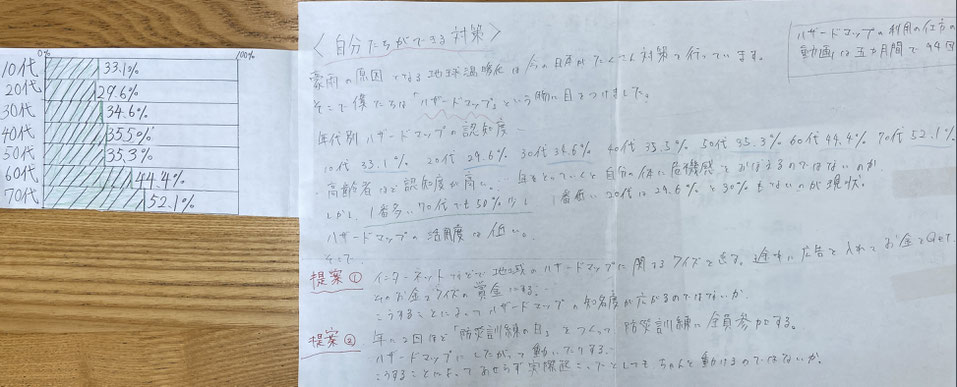 0%
100%
10代 33.1%
20代 29.6%
30代 34.6%
40代 35.5%
50代 35.3%
60代 44.4%
70代 52.1%
〈自分たちができる対策〉
ハザードマップの利用の仕方の
動画は五カ月間で44回
豪雨の原因となる地球温暖化は今の日本がたくさん対策を行っています。
そこで僕たちは「ハザードマップ」という物に目をつけました。
年代別ハザードマップの認知度
10代 33.1% 20代 29.6% 30代 34.6% 40代 35.5% 50代 35.3% 60代 44.4% 70代 52.1%
・高齢者ほど認知度が高い。…年をとっていくと自分の体に危機感をおぼえるのではないのか
しかし、1番多い70代でも50%少し 1番低い20代は29.6%と30%もないのが現状。
ハザードマップの活用度は低い。
そこで
提案① インターネットなどで地域のハザードマップに関するクイズを出る。途中に広告を入れてお金をGET
そのお金をクイズの賞金にする。
こうすることによってハザードマップの知名度が広がるのではないか
提案② 年に2回ほど「防災訓練の日」をつくって防災訓練に全員参加する。
ハザードマップにしたがって動いたりする。
こうすることによってあせらず実際起こったとしてもちゃんと動けるのではないか。